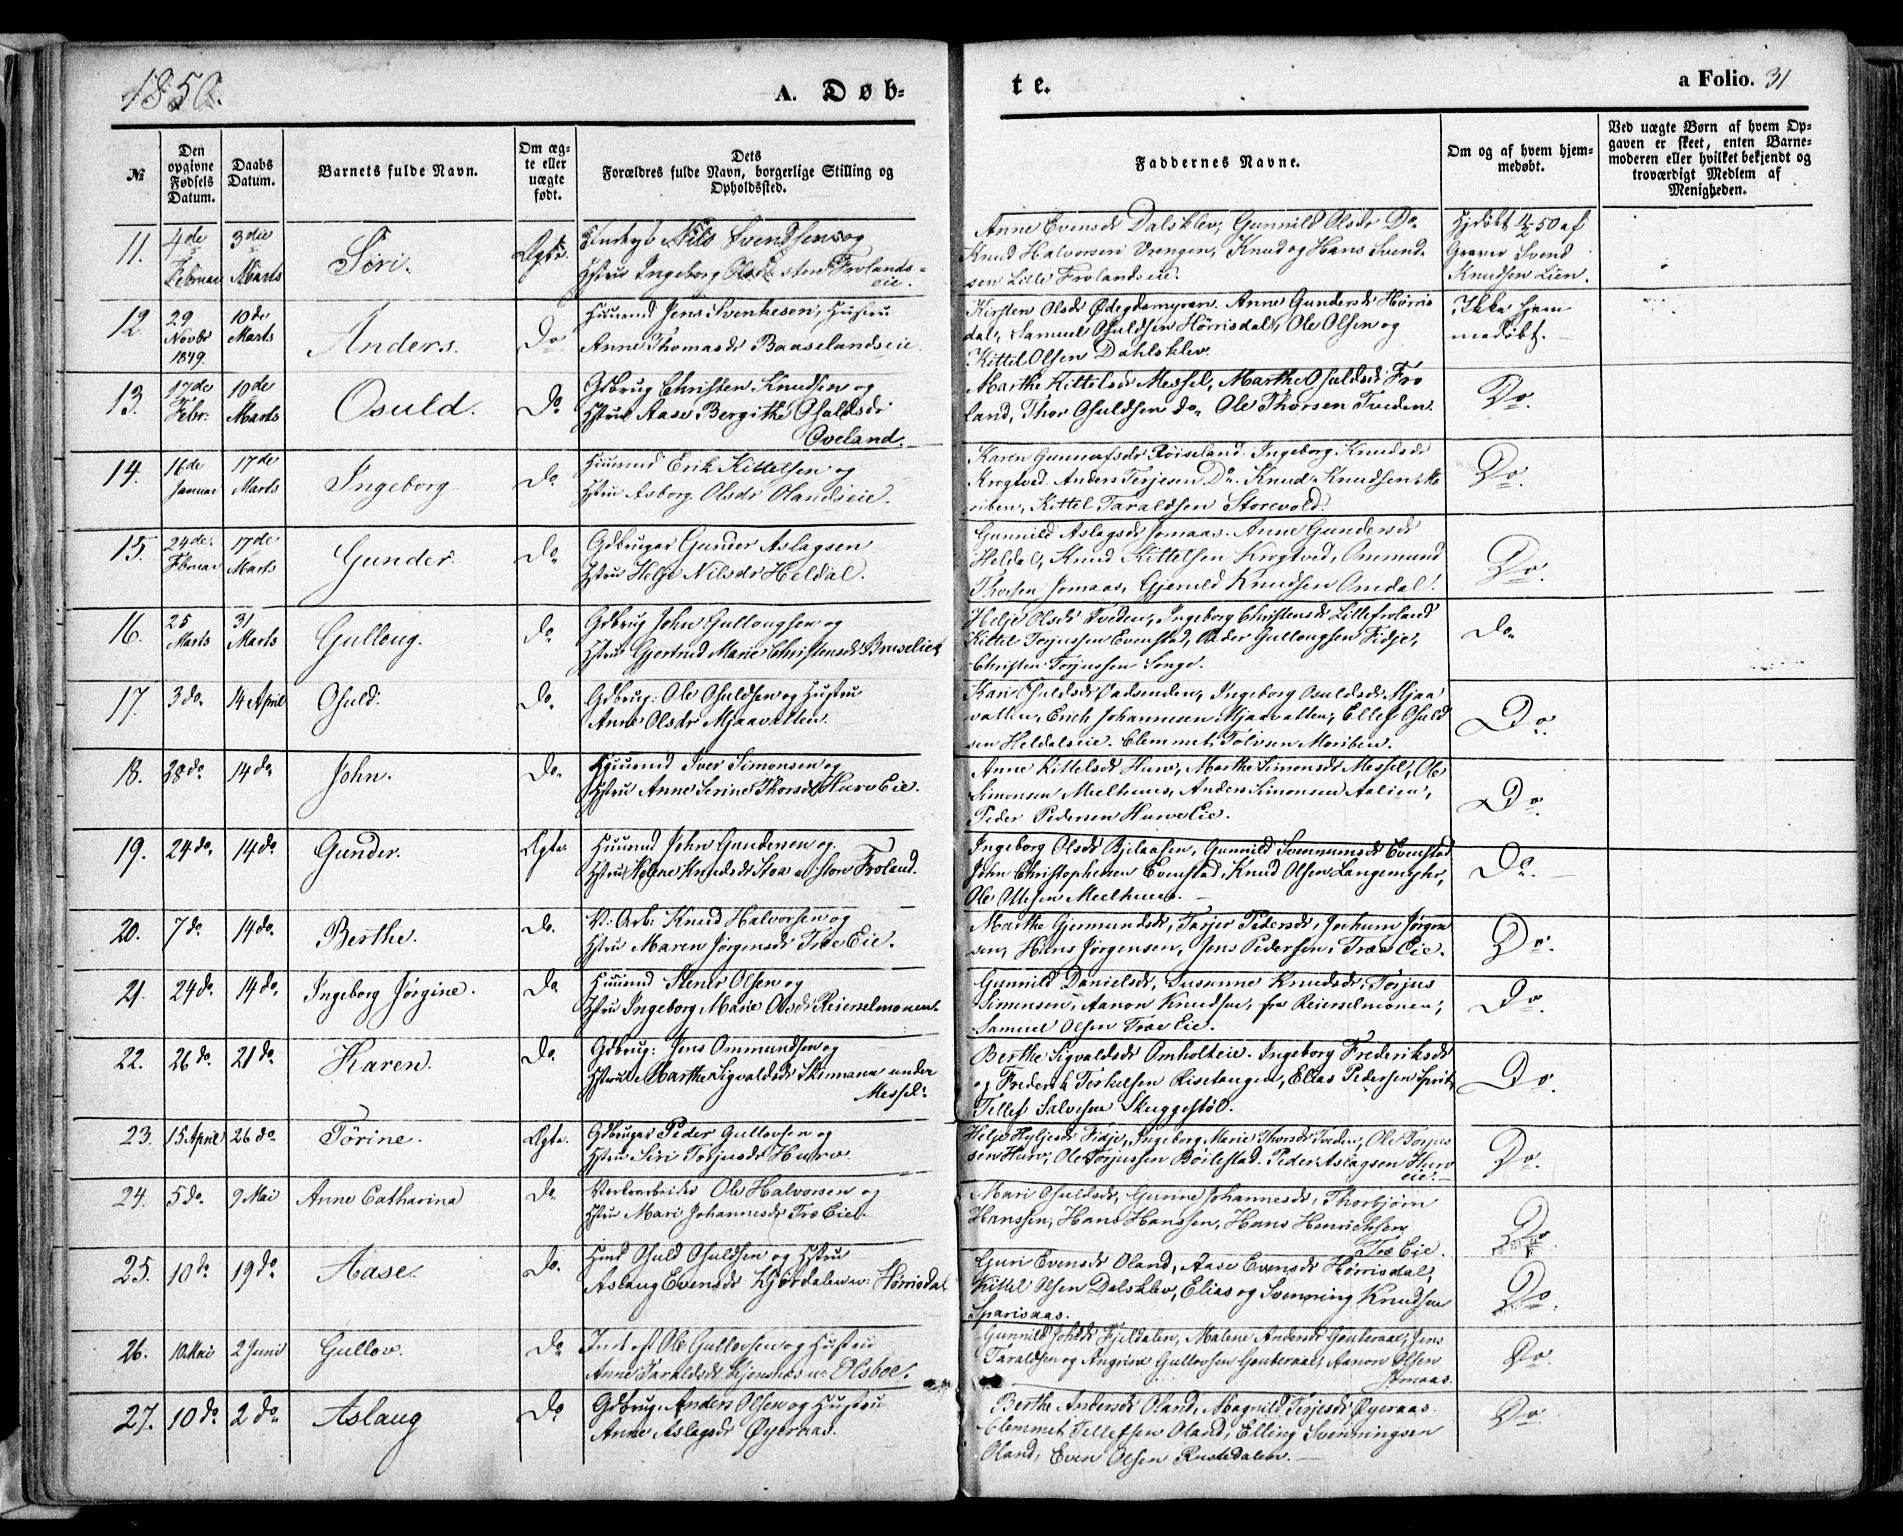 1850.
A. Døb-
te.
a Folio. 31
№
Den opgivne Fødsels Datum.
Daabs Datum.
Barnets fulde Navn.
Om ægte eller uægte født.
Dets Forældres fulde Navn, borgerlige Stilling og Opholdssted.
Faddernes Navne.
Om og af hvem hjemmedøbt.
Ved uægte Børn af hvem Opgaven er skeet, enten Barnemoderen eller hvilket bekjendt og troværdigt Medlem af Menigheden.
11. 4de Februar 3die Marts Siri. Ægte.
Nils Svendsen og
Hstru Ingeborg Olsdr Frolands-
eie.
Anne Evensdr Dalsklev, Gunnild Olsdr Do
Knud Halvorsen Vrengen, Knud og Hans Svend-
sen Lille Frolandseie.
Hjdøbt 4/2 50 af
Graver Svend
Knudsen Lien.
12 29 Novbr 1849. 10de Marts Anders. Do
Huusmd Jens Svenkesen, Hustru
Anne Thomasdr Baaselandseie.
Kirsten Olsdr Ødegdsmyren. Anne Gundersdr Hørris
dal, Samuel Osuldsen Hørrisdal, Ole Olsen og
Kittil Olsen Dahlsklev.
Ikke hjem
medøbt.
13. 17de Febr. 10de Marts Osuld. Do
Gdbrug Christen Knudsen og
Hstru Aase Bergithe Osuldsdr
Oveland.
Marthe Kittilsdr Messel, Marthe Osuldsdr Fro
land, Thor Osuldsen do. Ole Thorsen Tveden.
Do.
14. 16de Januar 17de Marts Ingeborg Do
Huusmd Erik Kittelsen og
Hstru Asborg Olsdr Olandseie.
Karen Gunnufsdr Røiseland. Ingeborg Knudsdr
Krogtved. Anders Terjesen Do. Knud Knudsen Mo
riben, Kittel Taraldsen Storevold.
Do.
15. 24de Februar 17de Marts Gunder. Do.
Gdbruger Gunder Aslagsen
Hstru Helje Nilsdr Heldal.
Gunnild Aslagsdr Jomaas. Anne Gundersdr
Heldal, Knud Kittelsen Krogtved, Ommund
Thorsen Jomaas, Gjeruld Knudsen Omdal.
Do.
16. 25 Marts 31 Marts Gulloug. do.
Gdbrug John Gullougsen og
Hstru Gjertrud Marie Christensdr Bruselien
Helje Olsdr Tveden, Ingeborg Christensdr Lillefroland
Kittil Torjussen Evenstad, Peder Gullougsen Fidje,
Christen Torjussen Songe.
do.
17. 3do. 14 April Osuld. Do.
Gdbrug: Ole Osuldsen og Hustru
Anne Olsdr Mjaavatten.
Kari Osuldsdr Vadsenden, Ingeborg Osuldsdr Mjaa
vatten, Erich Johannesen Mjaavatten, Ellef Osuld
sen Heldalseie. Clemmet Tolvsen Moriben.
Do.
18. 28do 14do John. Do.
Huusmd Iver Simonsen og
Hstru Anne Serine Thorsdr Hurv Eie.
Anne Kittelsdr Hurv, Marthe Simonsdr Messel, Ole
Simonsen Meelhuus, Anders Simonsen Aalien,
Peder Pedersen Hurv Eie.
Do
19. 24do. 14do. Gunder. Ægte.
Huusmd John Gundersen og
Hstru Helene Knudsdr Stoa store Froland.
Ingeborg Olsdr Bjelaasen, Gunnild Svennumsdr Evenstad
John Christophersen Evenstad, Knud Olsen Langemyhr,
Ole Ottesen Meelhuus.
Do.
20. 7do 14do. Berthe. Do.
V: Arb: Knud Halvorsen og
Hstru Maren Jørgensdr Træ Eie.
Marthe Gjermundsdr, Tarjer Pedersdr, Jochum Jørgen
sen, Hans Jørgensen, Jens Pedersen, Træ Eie.
Do.
21. 24do 14do. Ingeborg Jørgine. Do
Huusmd Stener Olsen og
Hstru Ingeborg Marie Olsdr Reierselmonen.
Gunnild Danielsdr, Susanne Knudsdr, Torjus
Simonsen, Aanon Knudsen, fra Reierselmonen,
Samuel Olsen Træ Eie.
Do.
22. 26do. 21do. Karen. Do.
Gdbrug: Jens Ommundsen og
Hstru Marthe Sigvaldsdr under
Messel.
Berthe Sigvaldsdr Omholteie. Ingeborg Frederiksdr
og Frederik Terkelsen Risetangen, Elias Pedersen Sprit
Tellef Salvesen Skuggestøl.
Do.
23. 15 April 26do. Torine. Ægte.
Gdbruger Peder Gullovsen og
Hstru Siri Torjusdr Hurv.
Helje Hyljesdr Fidje, Ingeborg Marie Thorsdr Tveden, Ole Torjus
sen Hurv, Ole Torjussen Bøilestad. Peder Aslagsen Hurv
eie.
Do.
24. 5do. 9 Mai Anne Catharina Do.
Verksarbeider Ole Halvorsen og
Hstru Mari Johannesdr Træ Eie.
Mari Osuldsdr, Gurine Johannesdr, Thorbjørn
Hanssen, Hans Hanssen, Hans Henrichsen
Træ Eie.
Do
25. 10do 19do Aase. Do.
Hmd Osuld Osuldsen og Hstru
Aslaug Evensdr Hørrisdal
Guri Evensdr Oland, Aase Evensdr Hørrisdal,
Kittel Olsen Dalsklev, Elias og Svenning Knudsen
Sparisaas.
Do.
26. 10 Mai 2 Juni Gullov. Do
Ole Gullovsen og Hustru
Anne Taraldsdr Olsboe.
Gunnild Johsdr Fjeldalen, Malene Andersdr Gouteraas, Jens
Taraldsen og Angrim Gullovsen Gouteraas, Aanon Olsen
Jomaas.
Do.
27. 10do 2do. Aslaug Do
Gdbrug: Anders Olsen og Hustru
Anne Aslagsdr Øyeraas.
Berthe Andersdr Oland, Magnild Terjesdr Øyeraas.
Clemmet Tellefsen Oland, Elling Svenningsen
Oland, Even Olsen Rustedalen.
Do.